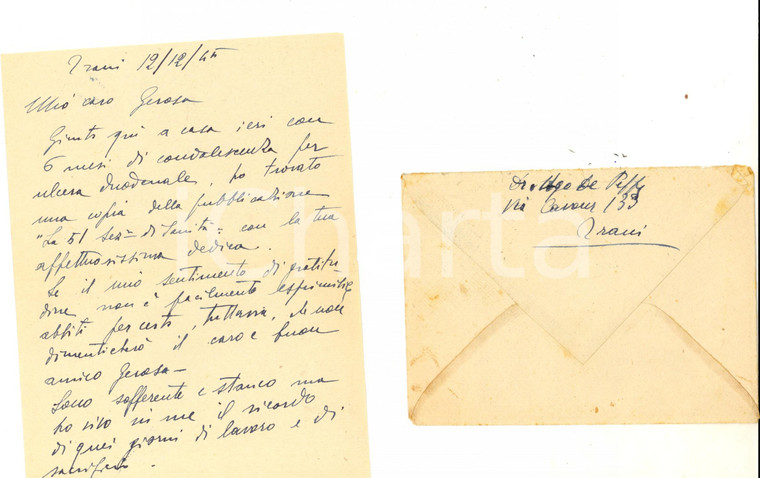 Trani 12/12/44
Mio caro Gerosa
Giunto qui a casa ieri con
6 mesi di convalescenza per
ulcera duodenale, ho trovato
una copia della pubblicazione
"La 51 Sezne di Sanità" con la tua
affettuosissima dedica.
Se il mio sentimento di gratitu-
dine non è facilmente esprimibile
abbiti per certo, tuttavia, che non
dimenticherò il caro e buon
amico Gerosa -
Sono sofferente e stanco ma
ho vivo in me il ricordo
di quei giorni di lavoro e di
sacrificio.
Dr Ugo De
Via Cavour 133
Trani
Charta